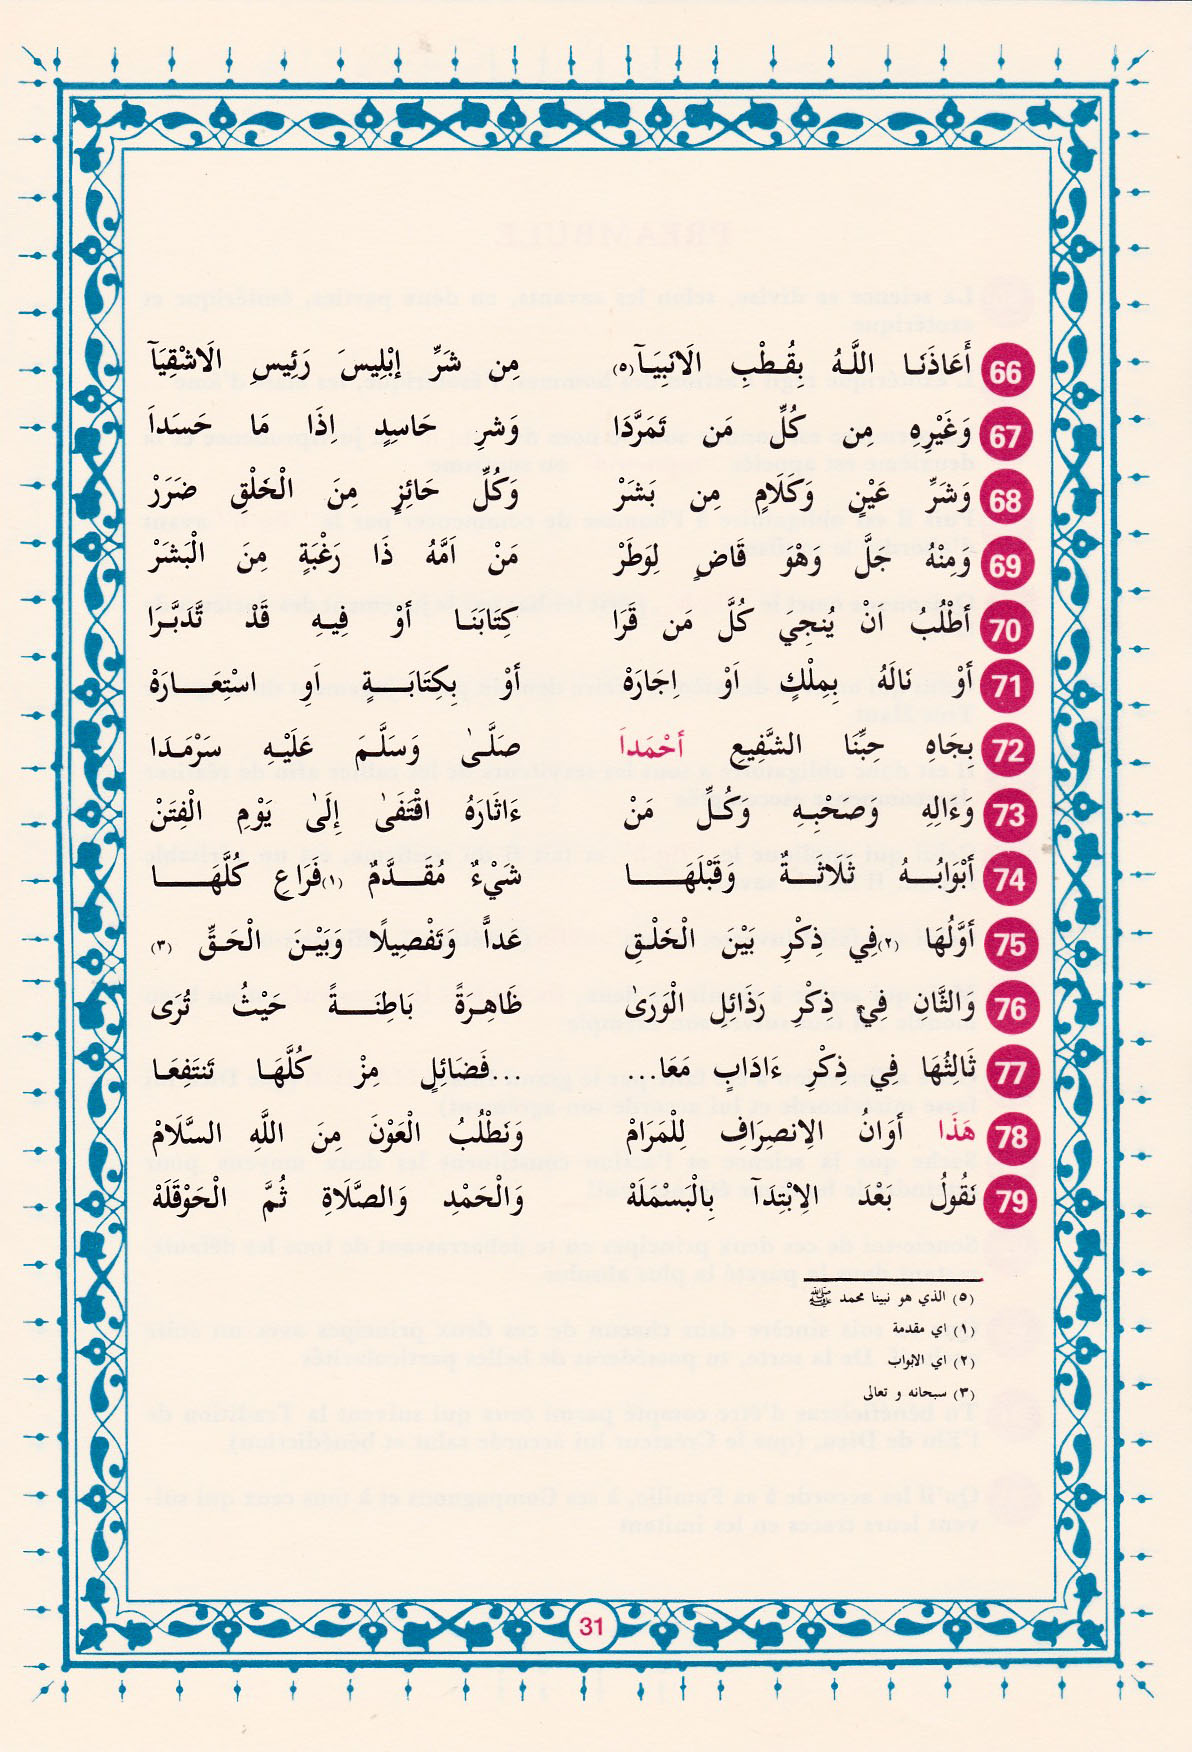 66 أَعَاذَنَا اللَّهُ بِقُطْبِ الَانبِيَآ (٥) مِن شَرِّ إبْلِيسَ رَئِيسِ الَاشْقِيَآ
67 وَغَيْرِهِ مِن كُلِّ مَن تَمَرَّدَا وَشرِ حَاسِدٍ اِذَا مَا حَسَداَ
68 وَشَرِّ عَيْنٍ وَكَلَامٍ مِن بَشَرْ وَكُلِّ حَائِزٍ مِنَ الْخَلْقِ ضَرَرْ
69 وَمِنْهُ جَلَّ وَهْوَ قَاضٍ لِوَطَرْ مَنْ اَمَّهُ ذَا رَغْبَةٍ مِنَ الْبَشَرْ
70 أطْلُبُ انْ يُنجِي كُلَّ مَن قَرَا كِتَابَنَا أوْ فِيهِ قَدْ تَّدَبَّرَا
71 أوْ نَالَهُ بِمِلْكٍ اَوْ اِجَارَهْ أوْ بِكِتَابَةٍ اَوِ اسْتِعَارَهْ
72 بِجَاهِ حِبِّنَا الشَّفِيعِ أحْمَداَ صَلَّىٰ وَسَلَّمَ عَلَيْهِ سَرْمَدَا
73 وَءَالِهِ وَصَحْبِهِ وَكُلِّ مَنْ ءَاثَارَهُ اقْتَفَىٰ إِلَىٰ يَوْمِ الْفِتَنْ
74 أبْوَابُهُ ثَلَاثَةٌ وَقَبْلَهَا شَيْءٌ مُقَدَّمٌ (١) فَرَاعِ كُلَّهَا
75 أوَّلُهَا (٢) فِي ذِكْرِ بَيْنَ الْخَلْقِ عَداًّ وَتَفْصِيلًا وَبَيْنَ الْحَقِّ (٣)
76 وَالثَّانِ فِي ذِكْرِ رذَائِلِ الْوَرَىٰ ظَاهِرَةً بَاطِنَةً حَيْثُ تُرَى
77 ثَالِثُهَا فِي ذِكْرِ ءَادَابٍ مَعَا... ...فَضَائِلٍ مِزْ كُلَّهَا تَنتَفِعَا
78 هَذَا أوَانُ الِانصِرَافِ لِلْمَرَامْ وَنَطْلُبُ الْعَوْنَ مِنَ اللَّهِ السَّلَامْ
79 نَقُولُ بَعْدَ الِابْتِدَآ بِالْبَسْمَلَهْ وَالْحَمْدِ وَالصَّلَاةِ ثُمَّ الْحَوْقَلَهْ
(٥) الذي هو نبينا محمد ﷺ
(١) اي مقدمة
(٢) اي الابواب
(٣) سبحانه و تعالى
31